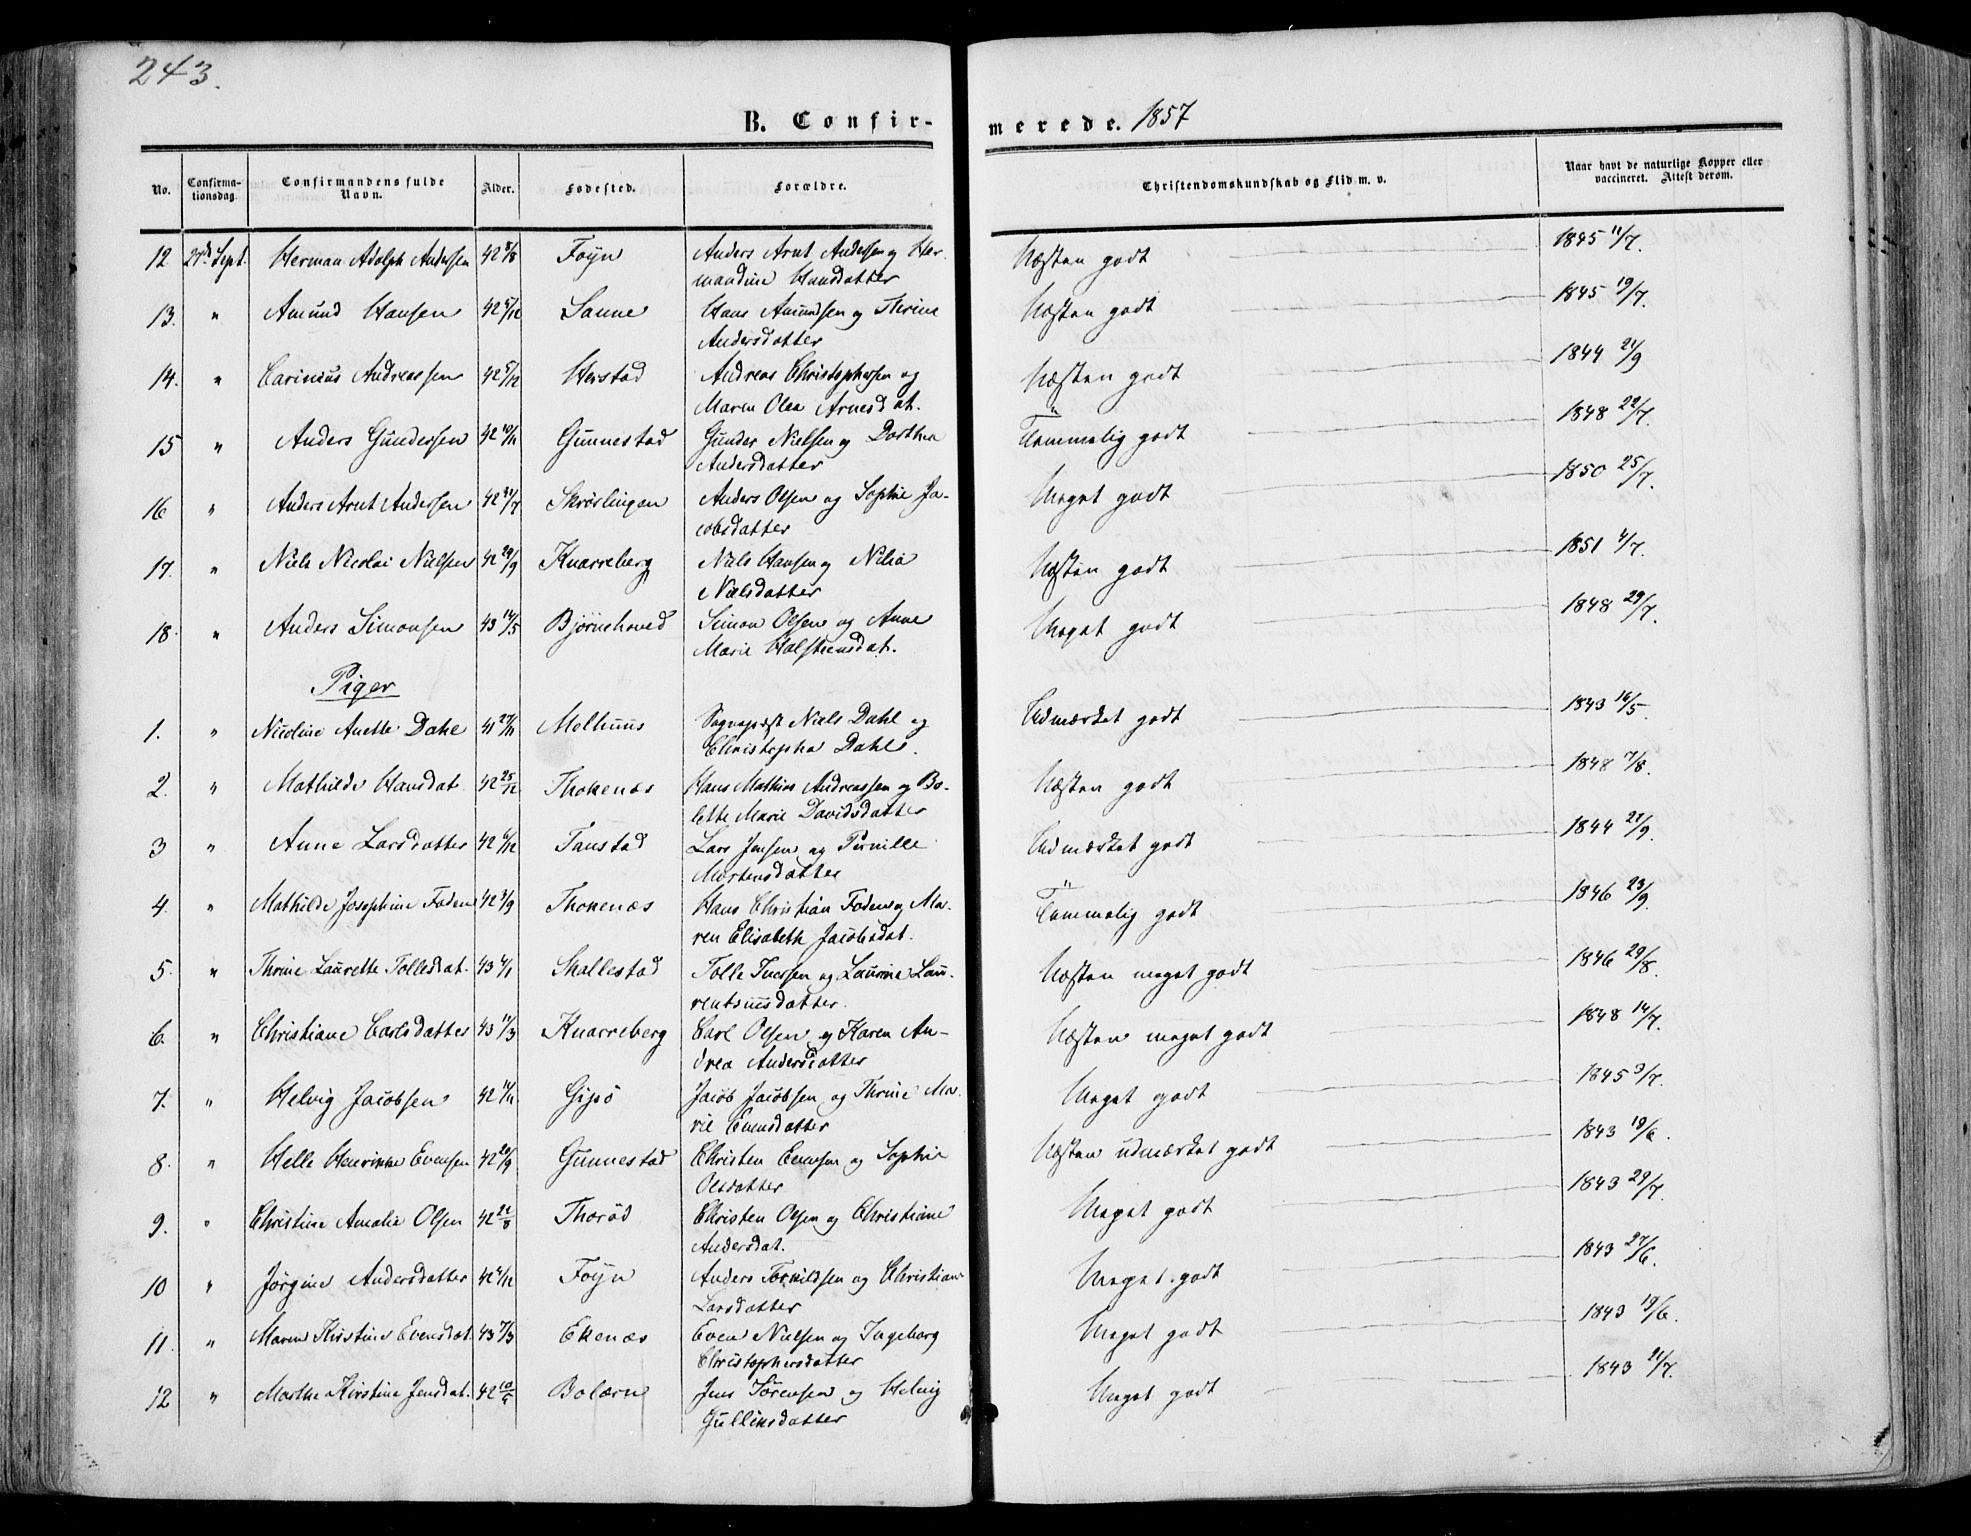 243.
B. Confirmerede. 1857
No. Confirmationsdag. Confirmandens fulde Navn. Alder. Fødested. Forældre. Christendomskundskab og Flid m. v. Naar havt de naturlige Kopper eller vaccineret. Attest derom.
12 27de Sept. Herman Adolph Andersen 42 8/8 Føyn Anders Arnt Andersen og Her- Næsten godt 1845 11/7.
mandine Hansdatter
13. " Amund Hansen 42 5/12 Sanne Hans Amundsen og Thrine Næsten godt 1845 19/7.
Andersdatter
14. " Carinius Andreassen 42 5/12 Herstad Andreas Christophersen og Næsten godt 1844 21/9
Maren Olea Arnesdat.
15 " Anders Gundersen 42 10/11 Gunnestad Gunder Nielsen og Dorthea Temmelig godt 1848 22/7.
Andersdatter
16 " Anders Arnt Andersen 42 31/7 Skrøslingen Anders Olsen og Sophie Ja- Meget godt 1850 25/7.
cobsdatter
17. " Niels Nicolai Nielsen 42 29/9 Knarreberg Niels Hansen og Nilia Næsten godt 1851 4/7.
Nielsdatter
18. " Anders Simonsen 43 14/5 Bjørnehoved Simon Olsen og Anne Meget godt 1848 29/7.
Marie Halsteensdat.
Piger
1. " Nicoline Anette Dahl 41 27/11 Melhuus Sognepræst Niels Dahl og Udmærket godt 1843 16/5.
Christopha Dahl.
2. " Mathilde Hansdat 42 25/12 Thokenæs Hans Mathias Andreassen og Bo- Næsten godt 1848 7/8.
lette Marie Davidsdatter
3 " Anne Larsdatter 42 6/12 Fanstad Lars Jensen og Pernille Udmærket godt 1844 21/9.
Mortensdatter
4. " Mathilde Josephine Foden 42 3/9 Thokenæs Hans Christian Foden og Ma- Temmelig godt 1846 23/9.
ren Elisabeth Jacobsdat.
5. " Thrine Laurette Tollesdat. 43 4/1 Skallestad Tolle Iversen og Laurine Lau- Næsten meget godt 1846 29/8.
rentsiusdatter.
6. " Christiane Carlsdatter 43 11/3 Knarreberg Carl Olsen og Karen An- Næsten meget godt 1848 14/7.
drea Andersdatter
7. " Helvig Jacobsen 42 11/11 Gipø Jacob Jacobsen og Thrine Ma- Meget godt 1845 3/7.
rie Evensdatter
8. " Helle Henrikke Evensen 42 20/9 Gunnestad Christen Evensen og Sophie Næsten udmærket godt 1843 19/6.
Olsdatter
9. " Christine Amalie Olsen 42 21/8 Thorød Christen Olsen og Christiane Meget godt 1843 29/7.
Andersdat.
10 " Jørgine Andersdatter 42 4/12 Føyn Anders Torkildsen og Christiane Meget godt 1843 27/6.
Larsdatter
11. " Maren Kirstine Evensdat. 43 7/3 Ekenæs Even Nielsen og Ingeborg Meget godt 1843 19/6.
Christophersdatter
12 " Marthe Kirstine Jensdat. 42 Bolærn Jens Sørensen og Helvig Meget godt 1843 21/7.
Gulliksdatter